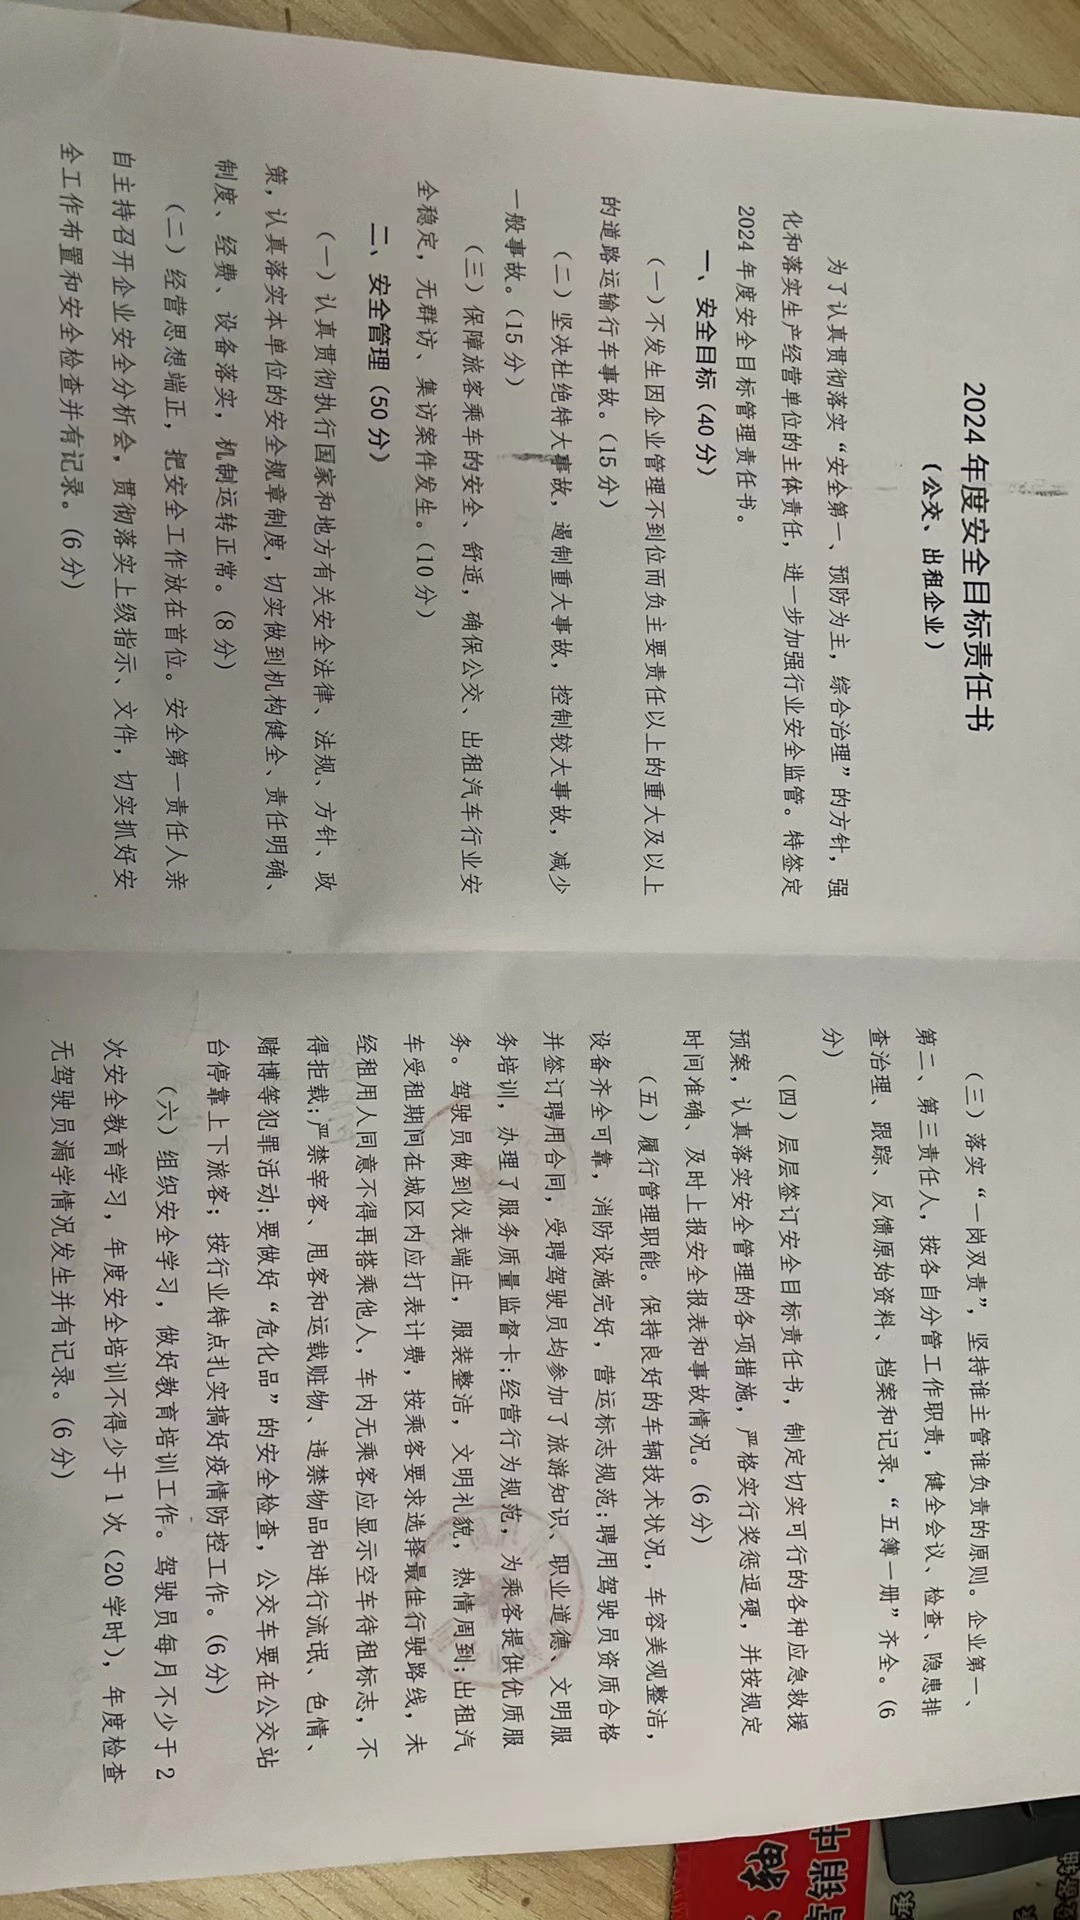 2024 年度安全目标责任书
（公交、出租企业）
为了认真贯彻落实“安全第一、预防为主，综合治理”的方针，强
化和落实生产经营单位的主体责任，进一步加强行业安全监管。特签定
2024 年度安全目标管理责任书。
一、安全目标（40 分）
（一）不发生因企业管理不到位而负主要责任以上的重大及以上
的道路运输行车事故。（15 分）
（二）坚决杜绝特大事故，遏制重大事故，控制较大事故，减少
一般事故。（15 分）
（三）保障旅客乘车的安全、舒适，确保公交、出租汽车行业安
全稳定，无群访、集访案件发生。（10 分）
二、安全管理（50 分）
（一）认真贯彻执行国家和地方有关安全法律、法规、方针、政
策，认真落实本单位的安全规章制度，切实做到机构健全、责任明确、
制度、经费、设备落实，机制运转正常。（8 分）
（二）经营思想端正，把安全工作放在首位。安全第一责任人亲
自主持召开企业安全分析会，贯彻落实上级指示、文件，切实抓好安
全工作布置和安全检查并有记录。（6 分）
（三）落实“一岗双责”，坚持谁主管谁负责的原则。企业第一、
第二、第三责任人，按各自分管工作职责，健全会议、检查、隐患排
查治理、跟踪、反馈原始资料、档案和记录，“五簿一册”齐全。（6
分）
（四）层层签订安全目标责任书，制定切实可行的各种应急救援
预案，认真落实安全管理的各项措施，严格实行奖惩逗硬，并按规定
时间准确、及时上报安全报表和事故情况。（6 分）
（五）履行管理职能。保持良好的车辆技术状况，车容美观整洁，
设备齐全可靠，消防设施完好，营运标志规范；聘用驾驶员资质合格
并签订聘用合同，受聘驾驶员均参加了旅游知识、职业道德、文明服
务培训，办理了服务质量监督卡；经营行为规范，为乘客提供优质服
务。驾驶员做到仪表端庄，服装整洁，文明礼貌，热情周到；出租汽
车受租期间在城区内应打表计费，按乘客要求选择最佳行驶路线，未
经租用人同意不得再搭乘他人，车内无乘客应显示空车待租标志，不
得拒载；严禁宰客、甩客和运载赃物、违禁物品和进行流氓、色情、
赌博等犯罪活动；要做好“危化品”的安全检查，公交车要在公交站
台停靠上下旅客；按行业特点扎实搞好疫情防控工作。（6 分）
（六）组织安全学习，做好教育培训工作。驾驶员每月不少于 2
次安全教育学习，年度安全培训不得少于 1 次（20 学时），年度检查
无驾驶员漏学情况发生并有记录。（6 分）